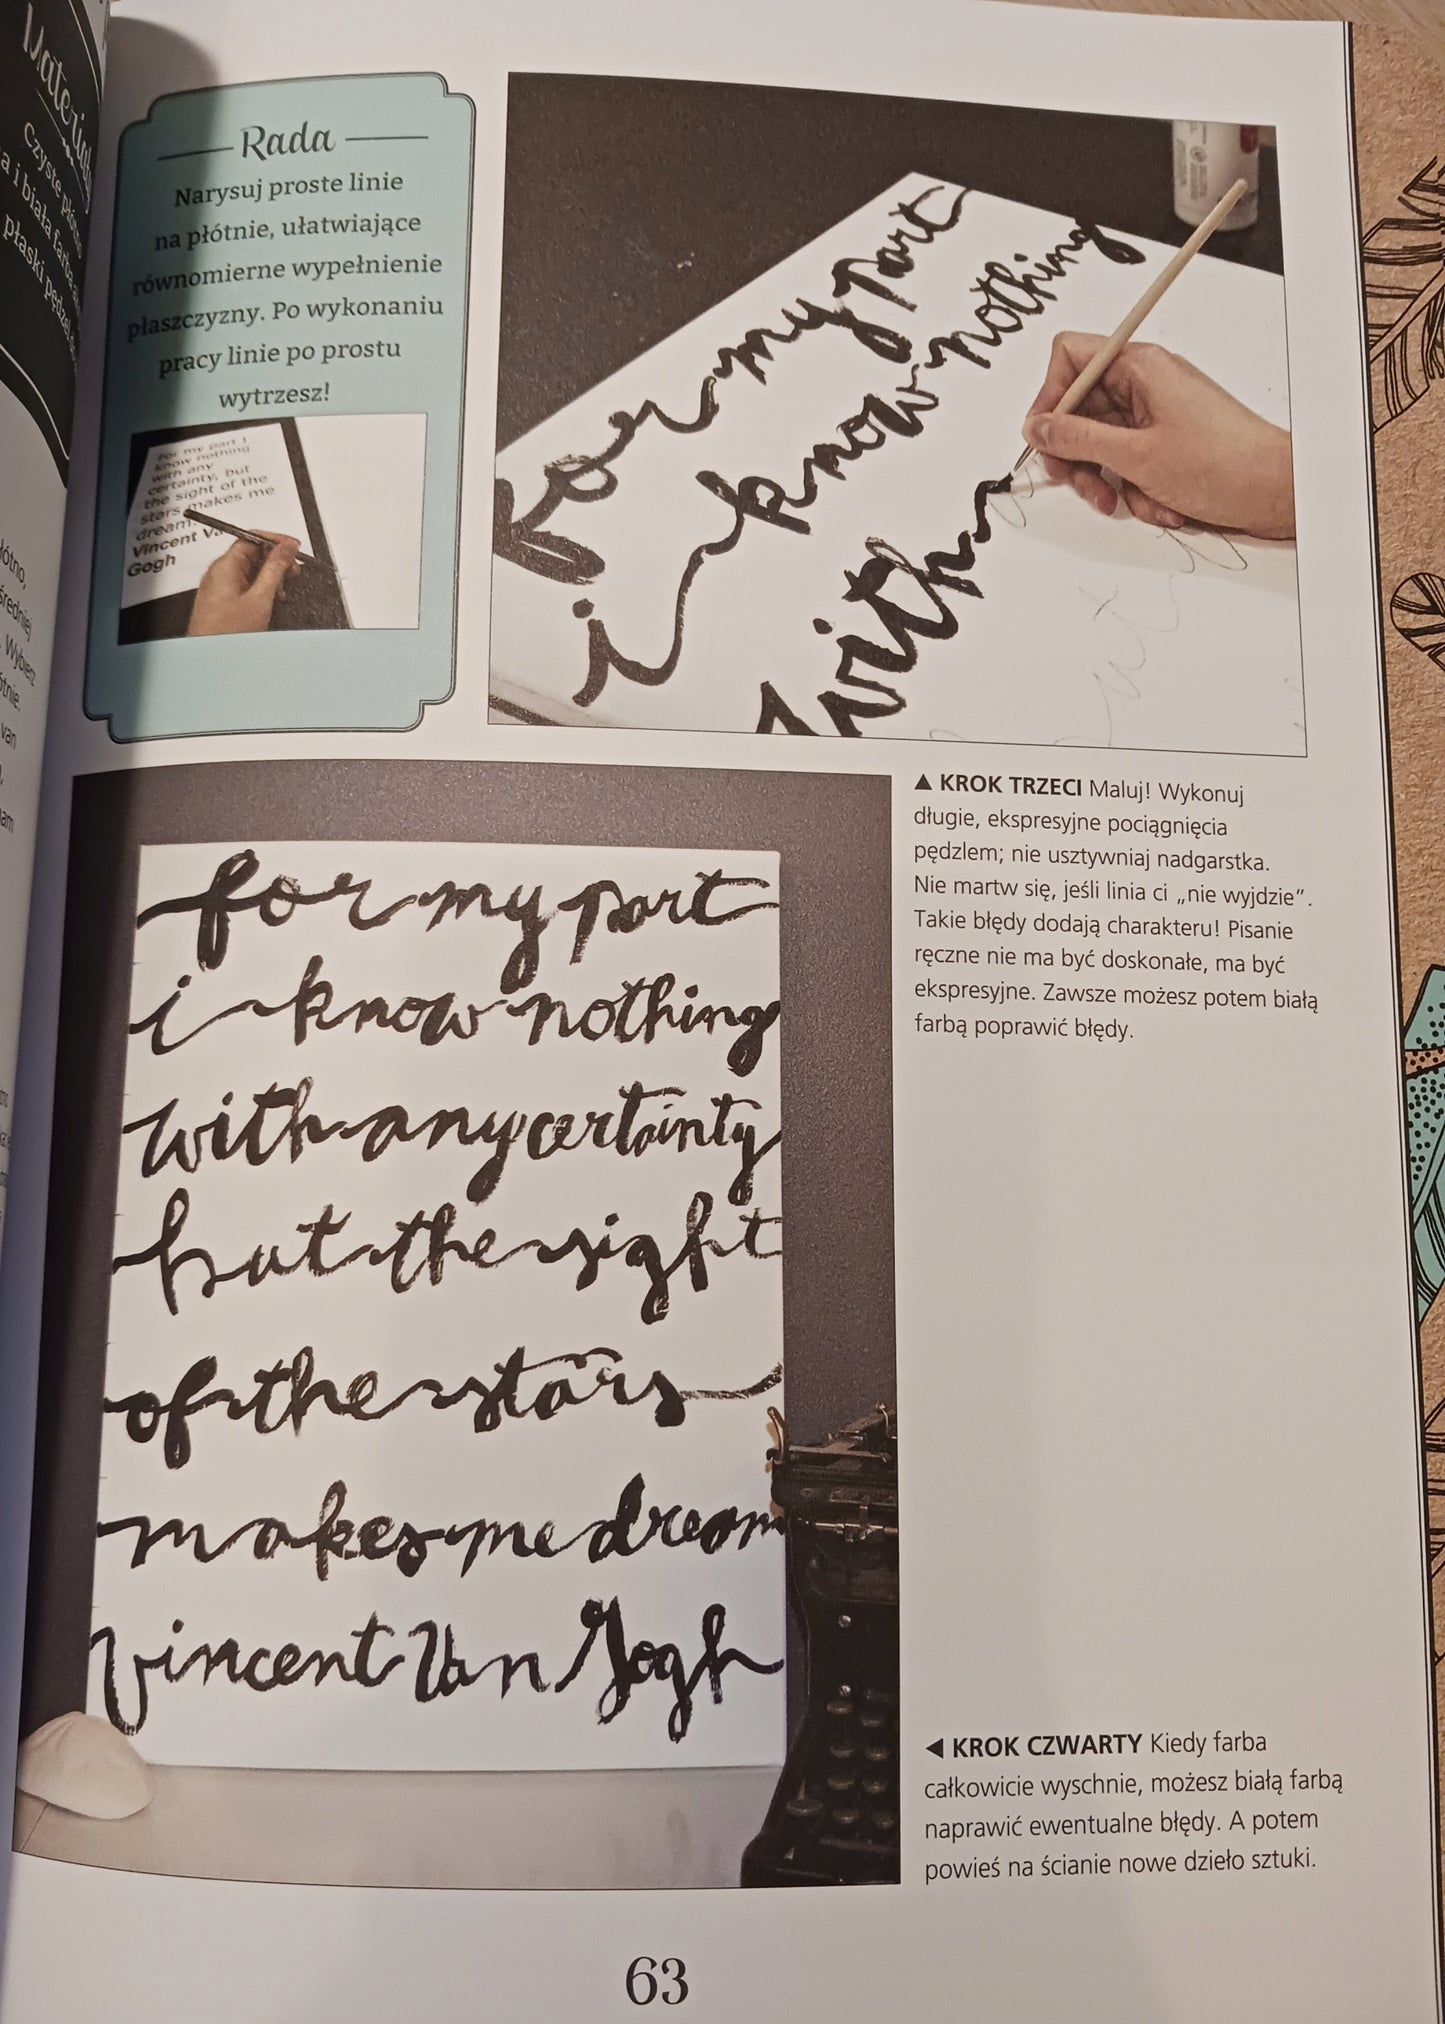 Materiały
Czyste płótno
a i biała farba
płaski pędzel
Rada
Narysuj proste linie
na płótnie, ułatwiające
równomierne wypełnienie
płaszczyzny. Po wykonaniu
pracy linie po prostu
wytrzesz!
For my part I
know nothing
with any
certainty, but
the sight of the
stars makes me
dream.
Vincent Va
Gogh
for my part
i know nothing
with
▲ KROK TRZECI Maluj! Wykonuj
długie, ekspresyjne pociągnięcia
pędzlem; nie usztywniaj nadgarstka.
Nie martw się, jeśli linia ci „nie wyjdzie”.
Takie błędy dodają charakteru! Pisanie
ręczne nie ma być doskonałe, ma być
ekspresyjne. Zawsze możesz potem białą
farbą poprawić błędy.
for my part
i know nothing
with any certainty
but the sight
of the stars
makes me dream
Vincent Van Gogh
◄ KROK CZWARTY Kiedy farba
całkowicie wyschnie, możesz białą farbą
naprawić ewentualne błędy. A potem
powieś na ścianie nowe dzieło sztuki.
63